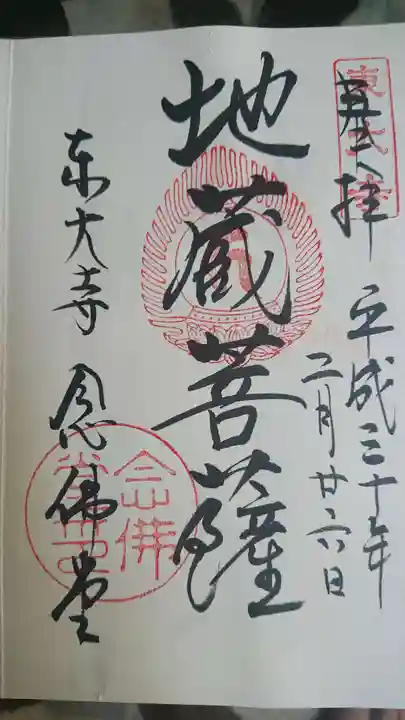 奉拝
平成三十年
二月廿六日
地蔵菩薩
東大寺 念佛堂
念佛